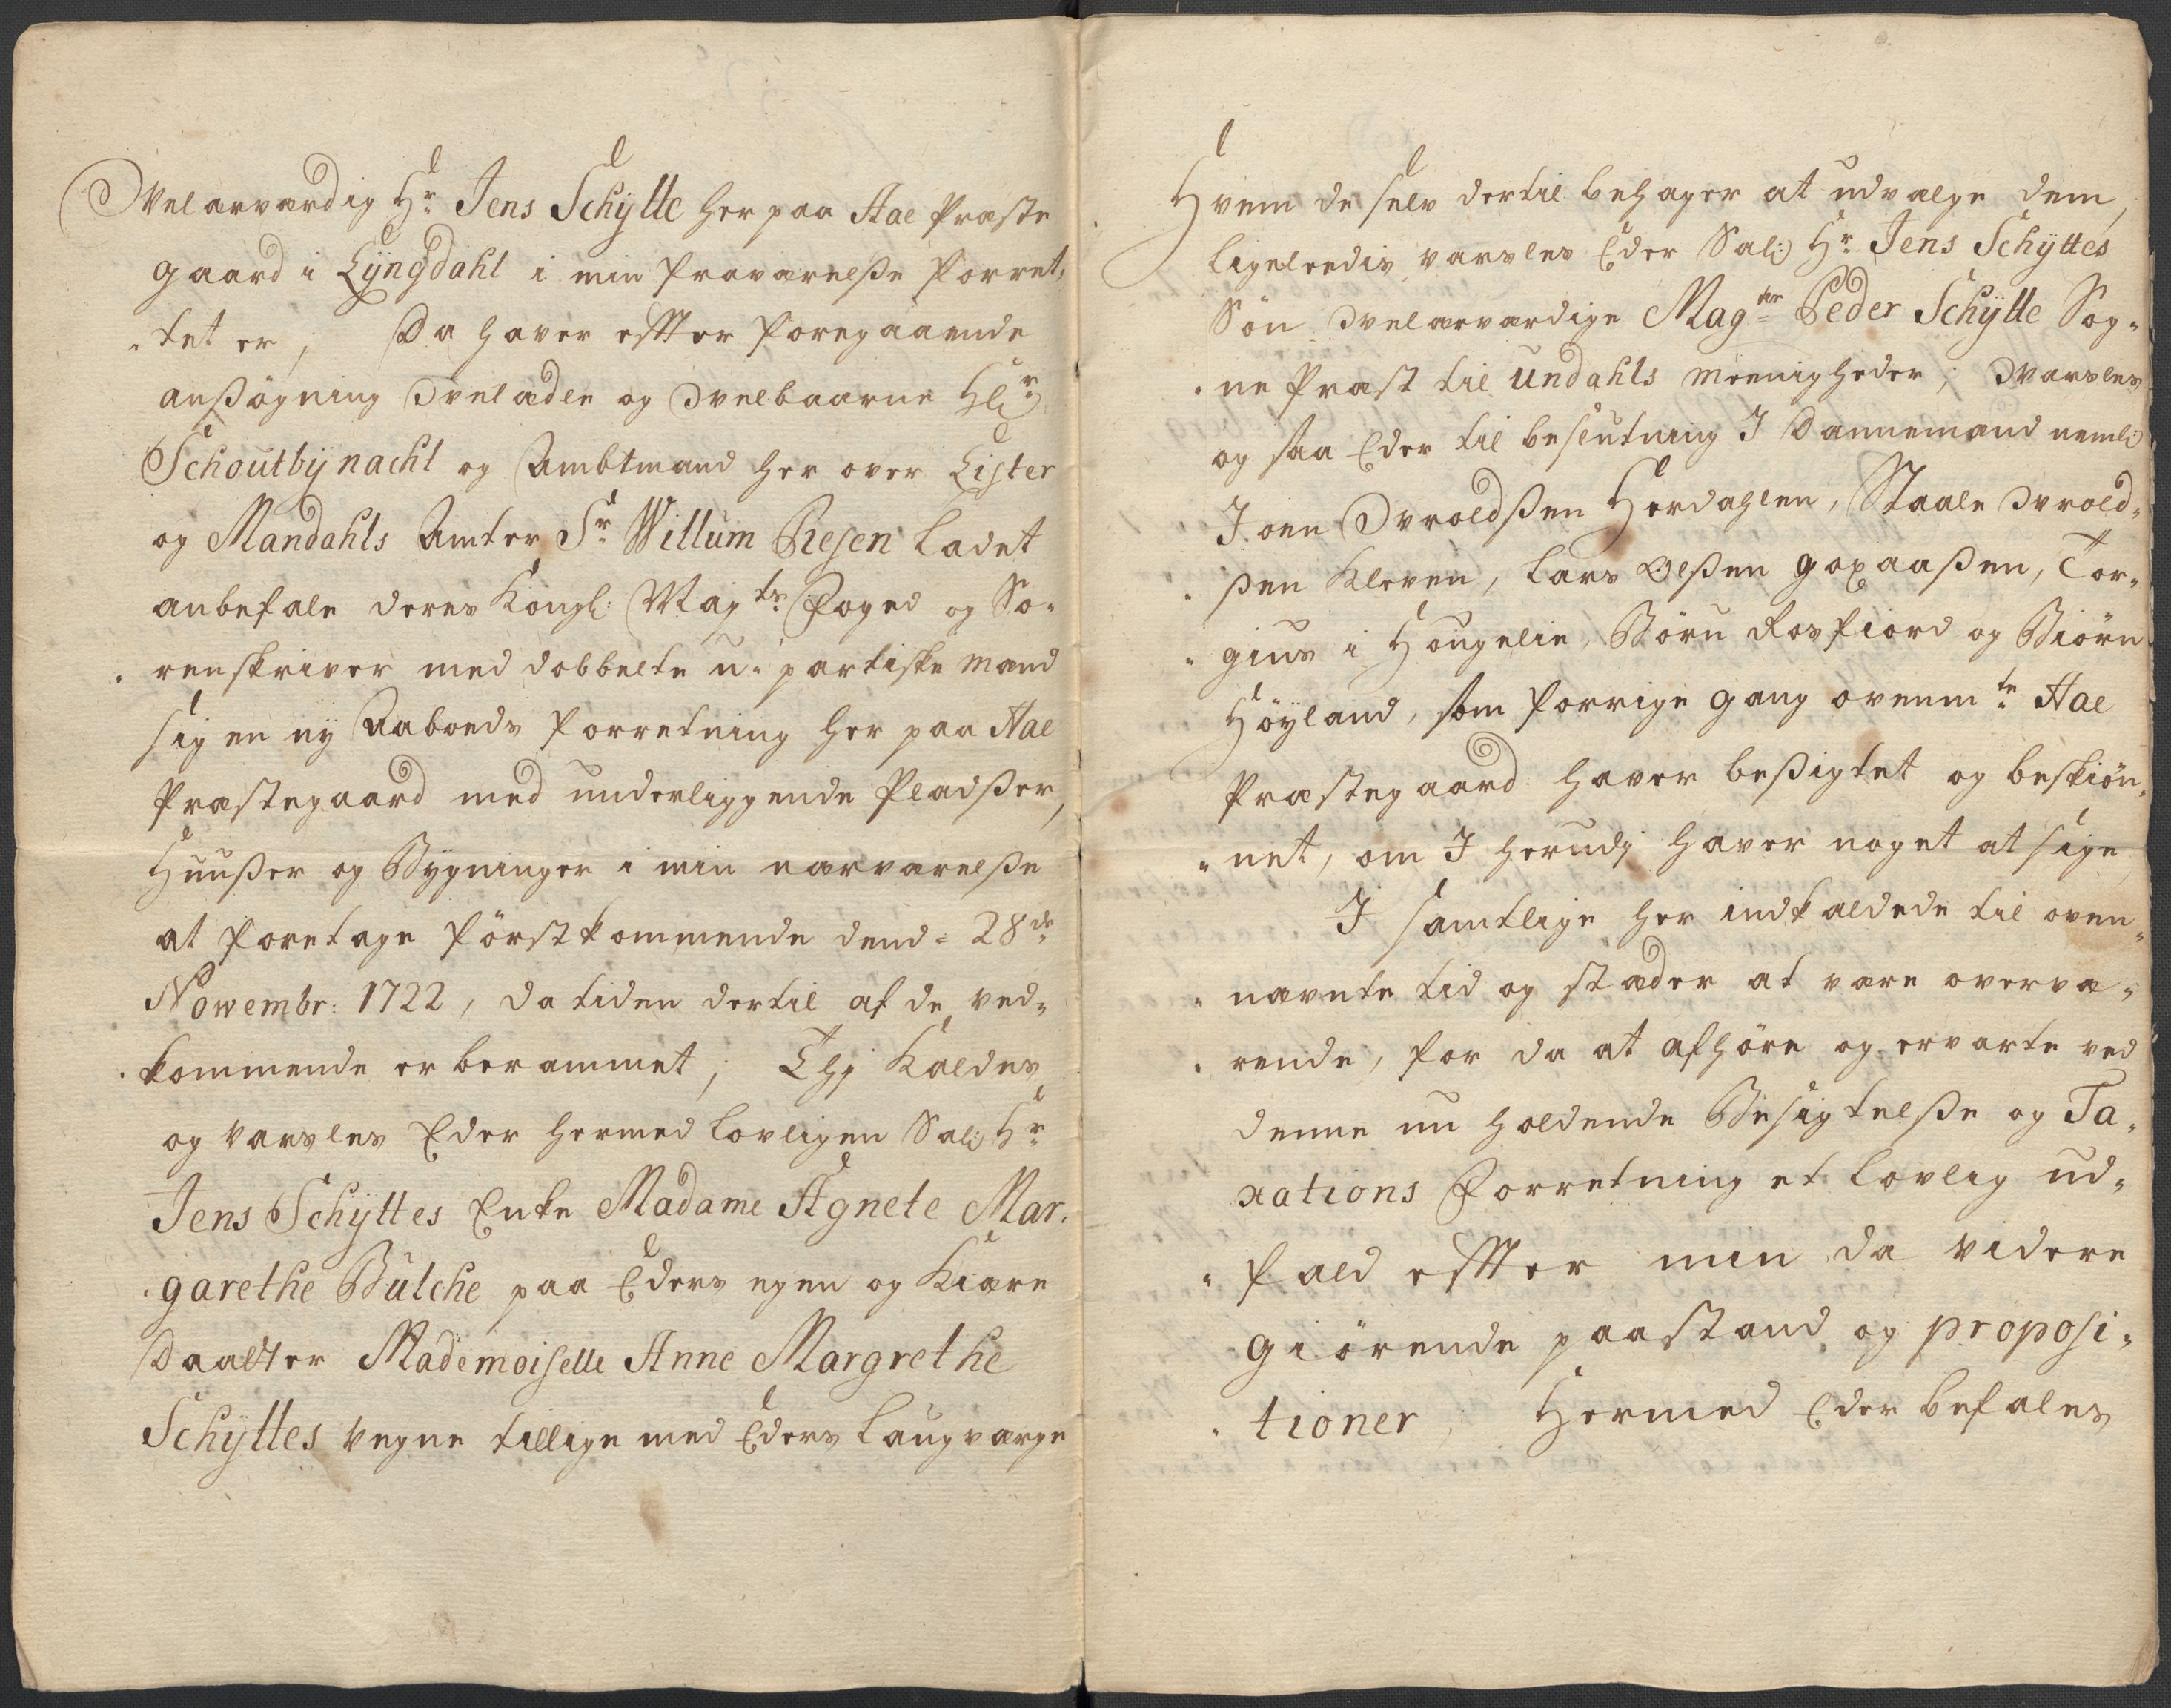 Velærværdig Hr. Jens Schÿtte her paa Aae Præste
gaard i Lÿngdahl i min Fraværelße forret,
„tet er; Da haver effter foregaaende
anßögning Velædle og Velbaarne
Schoutbÿnacht og Ambtmand her over Lister
og Mandahls Amter Sr. Willum Resen ladet
anbefale deres Kongl: Maÿts. Foged og So„
„renskriver med dobbelte u-partiske Mænd
sig en nÿ Aaboeds forretning her paa Aae
Præstegaard med underliggende Pladßer,
Huußer og Bygninger i min nærværelße
at foretage förstkommende dend 28de
Nowembr: 1722, da tiden dertil af de ved„
„kommende er berammet; Thj Kaldes
og varsles Eder hermed lovligen Sal: Hr.
Jens Schÿttes Enke Madame Agnete Mar„
„garethe Bülche paa Eders egen og Kiære
Daatter Mademoiselle Anne Margrethe
Schÿttes vegne tillige med Eders Laugværge
Hvem de selv dertil behager at udvælge dem,
ligeleedis varsles Eder Sal: Hr. Jens Schÿttes
Sön Velærværdige Magter Peder Schÿtte Sog„
„ne Præst til Undahls Meenigheder; Varsles
og saa Eder til beslutning I Dannemænd neml:
Joen Ovroldßen Herdahlen, Staale Ovrold„
„ßen Kleven, Lars Olßen Goxaaßen, Tor„
„gius i Hougelie, Böru Rosfiord og Biörn
Höÿland, som forrige gang ovenmte. Aae
Præstegaard haver beßigtet og beskiön„
„net, om I herudj haver noget at sige
I samtlige her indkaldede til oven„
„nævnte tid og stæder at være overvæ„
„rende, for da at afhöre og ervarte ved
denne nu holdende Besigtelße og Ta„
xations Forretning et lovlig ud„
„fald effter min da videre
giörende paastand og proposi„
„tioner; Hermed Eder befales